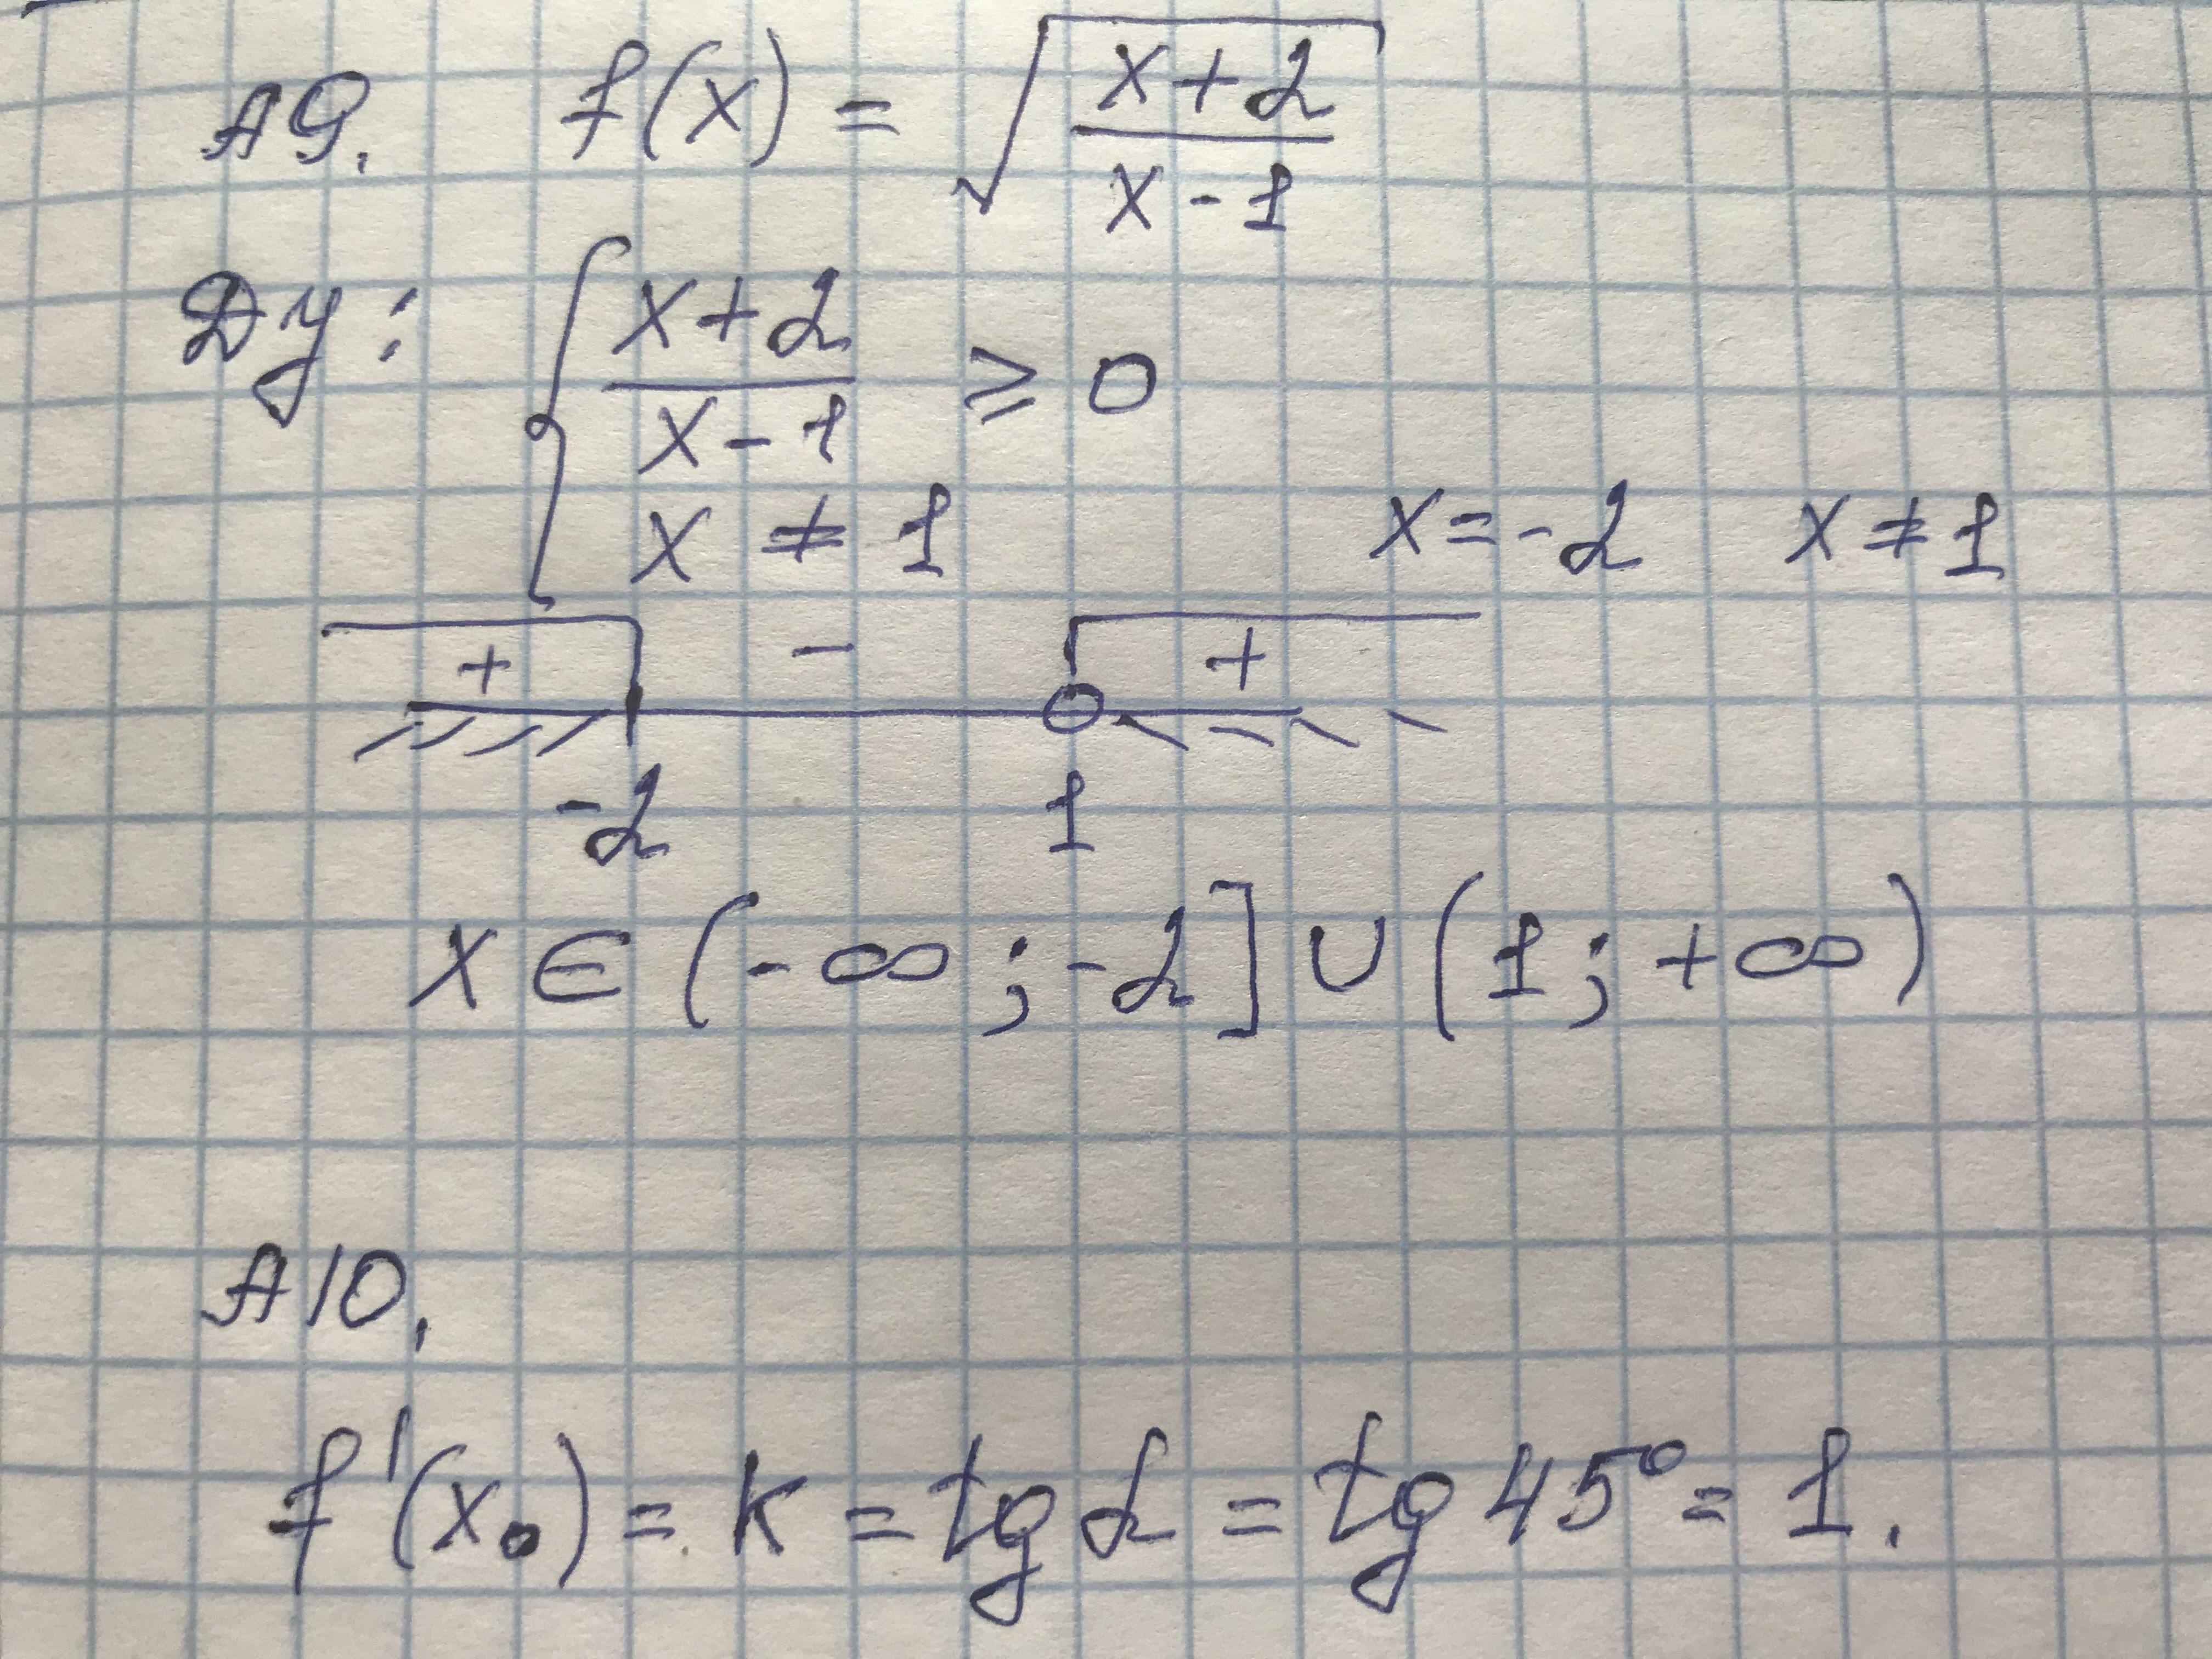 А9. f(x) = √((x+2)/(x-1))
Dy: { (x+2)/(x-1) ≥ 0
x ≠ 1 x=-2 x≠1
+ - +
-2 1
x ∈ (-∞; -2] ∪ (1; +∞)
А10.
f'(x₀) = k = tg α = tg 45° = 1.